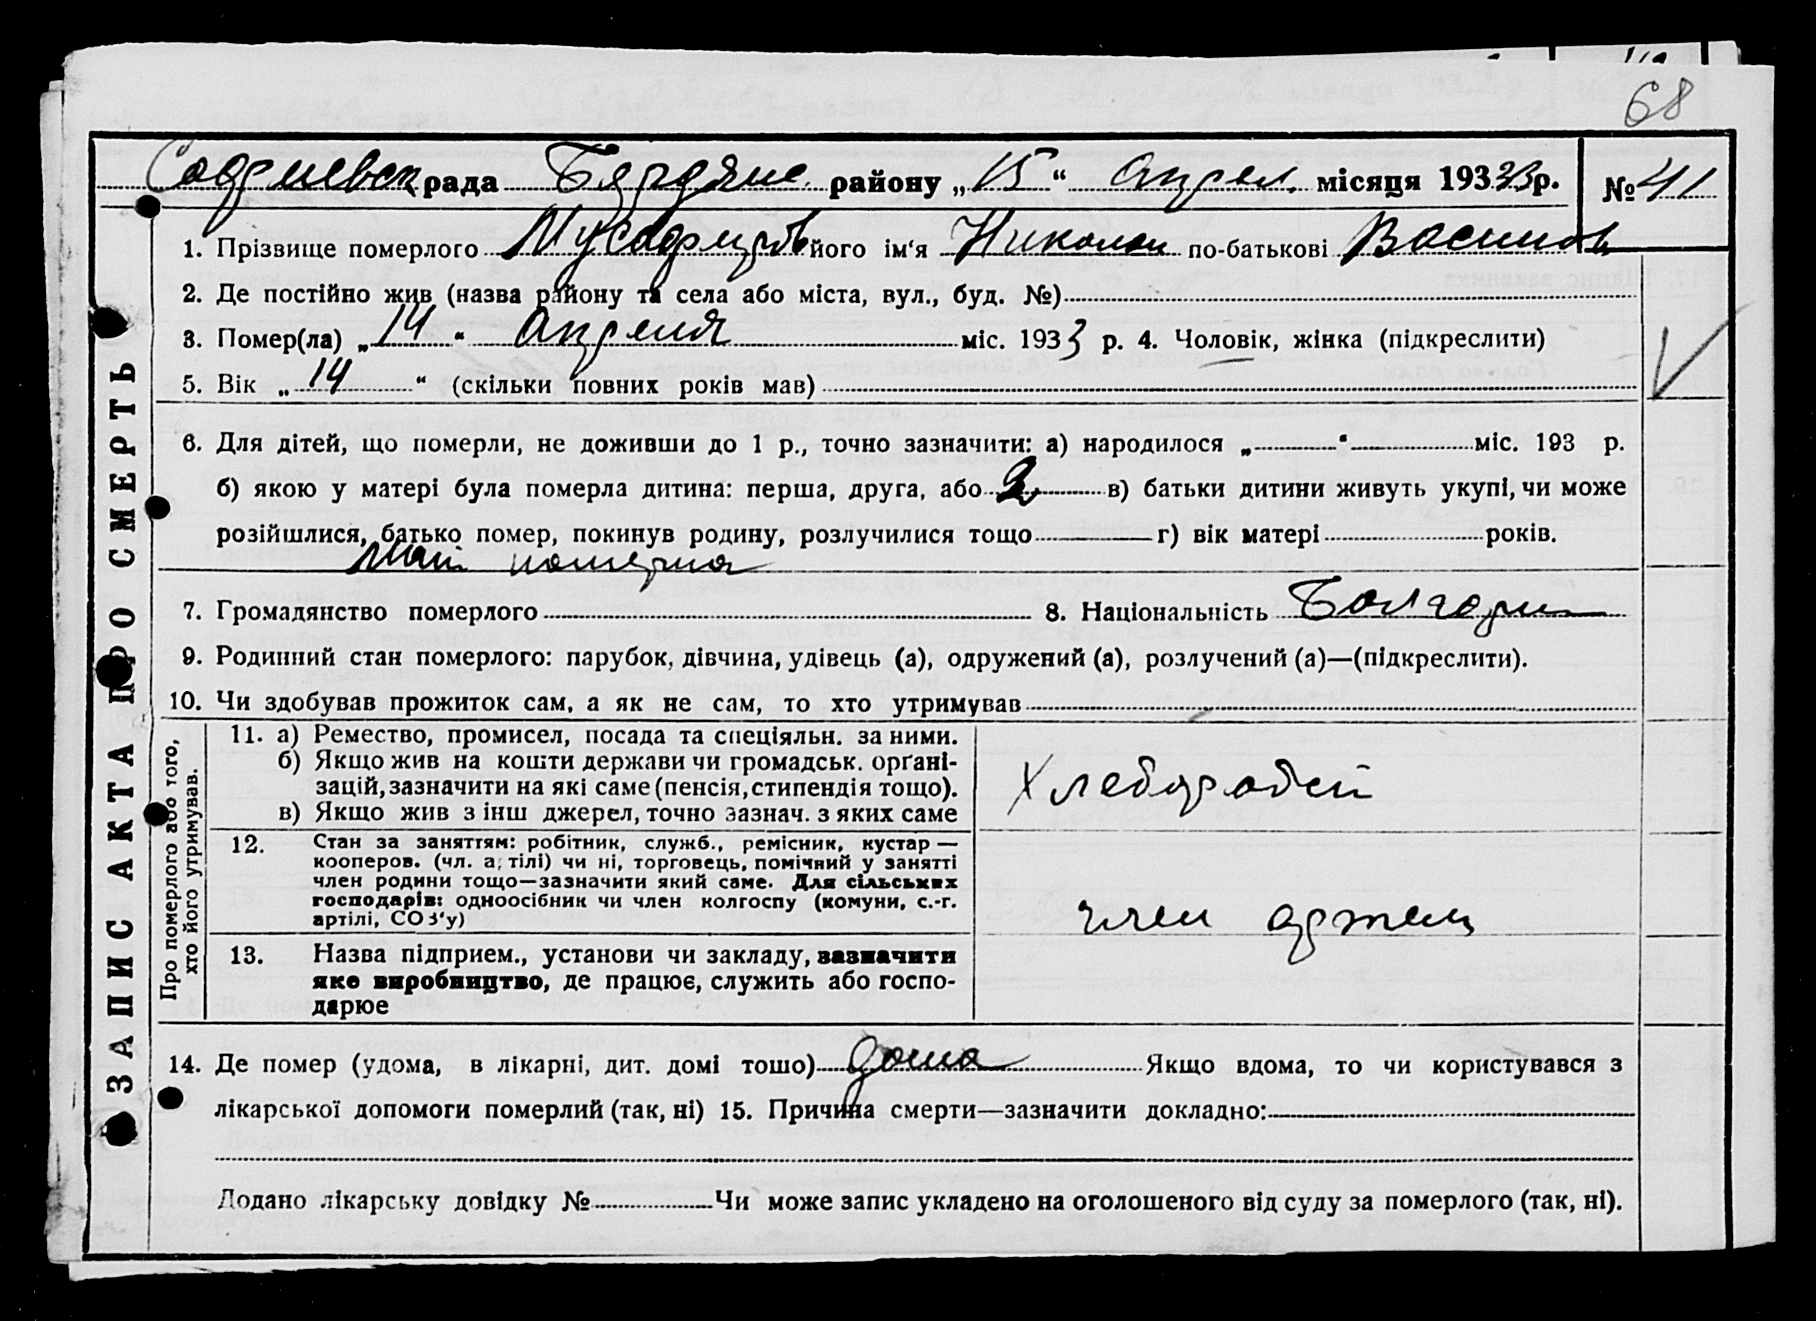 68
Софиевск рада Бердянс. району „15“ Апрел. місяця 1933 р. № 41
1. Прізвище померлого Мусафиров його ім‘я Николай по-батькові Васильев
2. Де постійно жив (назва району та села або міста, вул., буд. №)
3. Помер(ла) „14“ Апреля міс. 1933 р. 4. Чоловік, жінка (підкреслити)
5. Вік „14“ (скільки повних років мав)
6. Для дітей, що померли, не доживши до 1 р., точно зазначити: а) народилося „ “ міс. 193 р.
б) якою у матері була померла дитина: перша, друга, або 2 в) батьки дитини живуть укупі, чи може
розійшлися, батько помер, покинув родину, розлучилися тощо г) вік матері років.
7. Громадянство померлого 8. Національність Болгарин
9. Родинний стан померлого: парубок, дівчина, удівець (а), одружений (а), розлучений (а)—(підкреслити).
10. Чи здобував прожиток сам, а як не сам, то хто утримував
ЗАПИС АКТА ПРО СМЕРТЬ
Про померлого або того,
хто його утримував.
11. а) Ремество, промисел, посада та спеціяльн. за ними.
б) Якщо жив на кошти держави чи громадськ. орґані-
зацій, зазначити на які саме (пенсія, стипендія тощо).
в) Якщо жив з інш джерел, точно зазнач. з яких саме
Хлебороб
12. Стан за заняттям: робітник, служб., ремісник, кустар —
кооперов. (чл. артілі) чи ні, торговець, помічний у занятті
член родини тощо—зазначити який саме. Для сільських
господарів: одноосібник чи член колгоспу (комуни, с.-г.
артілі, СОЗ‘у)
член артели
13. Назва підприєм., установи чи закладу, зазначити
яке виробництво, де працює, служить або госпо-
дарює
14. Де помер (удома, в лікарні, дит. домі тошо) дома Якщо вдома, то чи користувався з
лікарської допомоги померлий (так, ні) 15. Причина смерти—зазначити докладно:
Додано лікарську довідку № Чи може запис укладено на оголошеного від суду за померлого (так, ні).